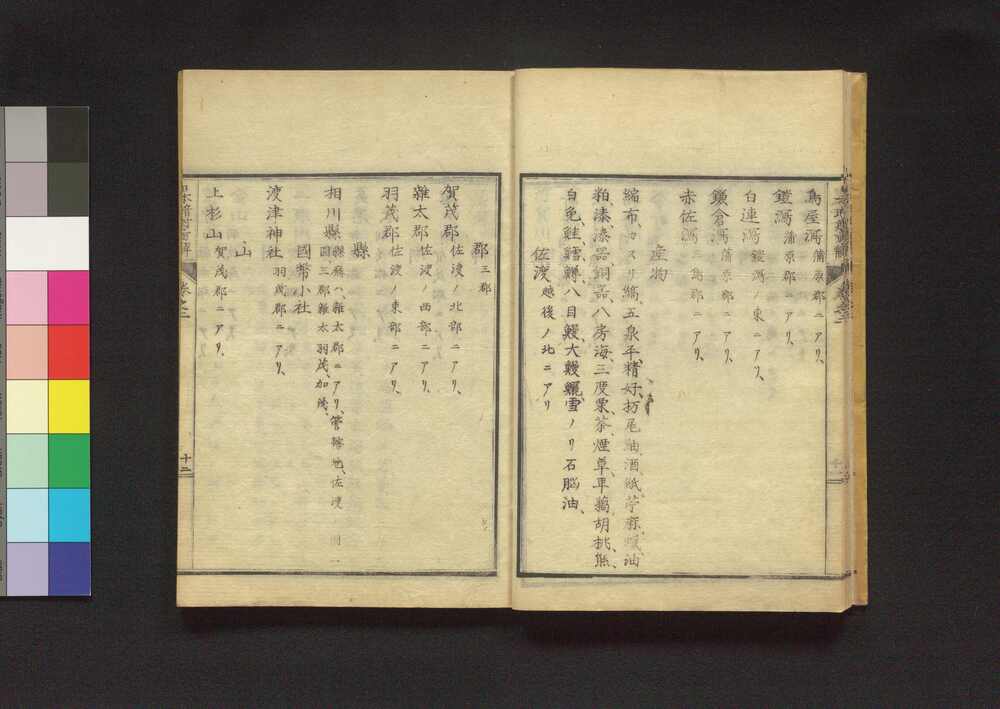 鳥屋潟蒲原郡ニアリ、
鎧潟蒲原郡ニアリ、
白連潟鎧潟ノ東ニアリ、
鎌倉潟蒲原郡ニアリ、
赤佐潟三島郡ニアリ、
産物
縮布、カスリ縞、五泉平、精好、栃尾紬、酒、紙、苧麻、蝋、油
粕、漆、漆器、銅器、八房海、三度栗、茶、煙草、車鵜、胡桃、熊、
白兔、鮭、鱈、鱒、八目鰻、大鰻鱺、雪ノリ石脳油、
佐渡越後ノ北ニアリ
郡三郡
賀茂郡佐渡ノ北部ニアリ、
雜太郡佐渡ノ西部ニアリ、
羽茂郡佐渡ノ東部ニアリ、
縣
相川縣縣廳ハ、雜太郡ニアリ、管轄地、佐渡
國三郡雜太羽茂、加茂、
國幣小社
渡津神社羽茂郡ニアリ、
山
上杉山賀茂郡ニアリ、
卷之二
十二